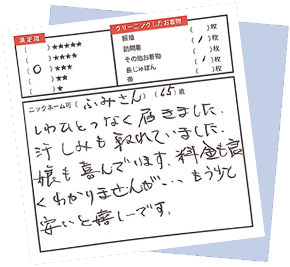 満足度
( )★★★★★
( )★★★★
(○)★★★
( )★★
( )★
クリーニングしたお着物
振袖 ( )枚
訪問着 (1)枚
その他お着物 ( )枚
長じゅばん (1)枚
帯 ( )枚
ニックネーム可(ふみさん)(65)歳
しわひとつなく届きました。
汗しみも取れていました。
娘も喜んでいます。料金も
くわかりませんが… もう少し
安いと嬉しーです。